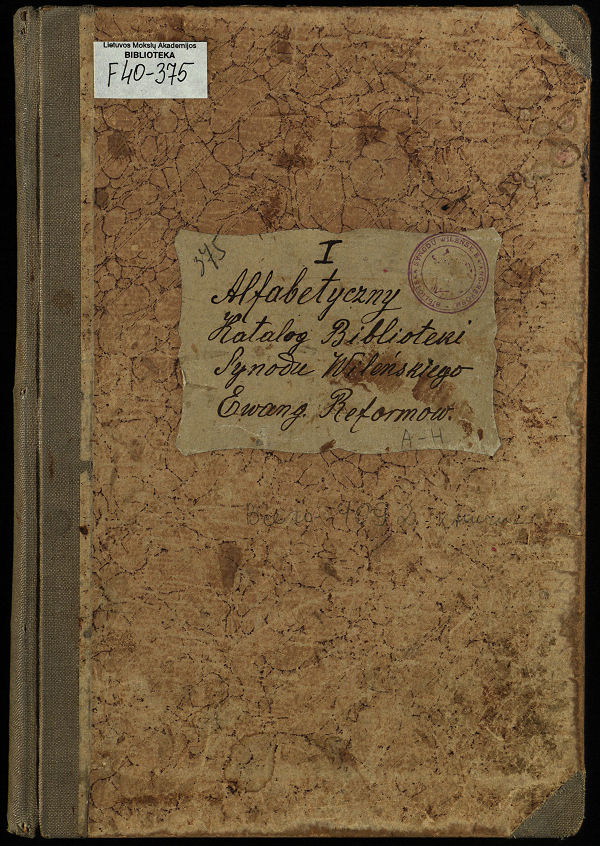 Lietuvos Mokslų Akademijos
BIBLIOTEKA
F40-375
375
I
Alfabetyczny
Katalog Biblioteki
Synodu Wileńskiego
Ewang. Reformow.
A-H